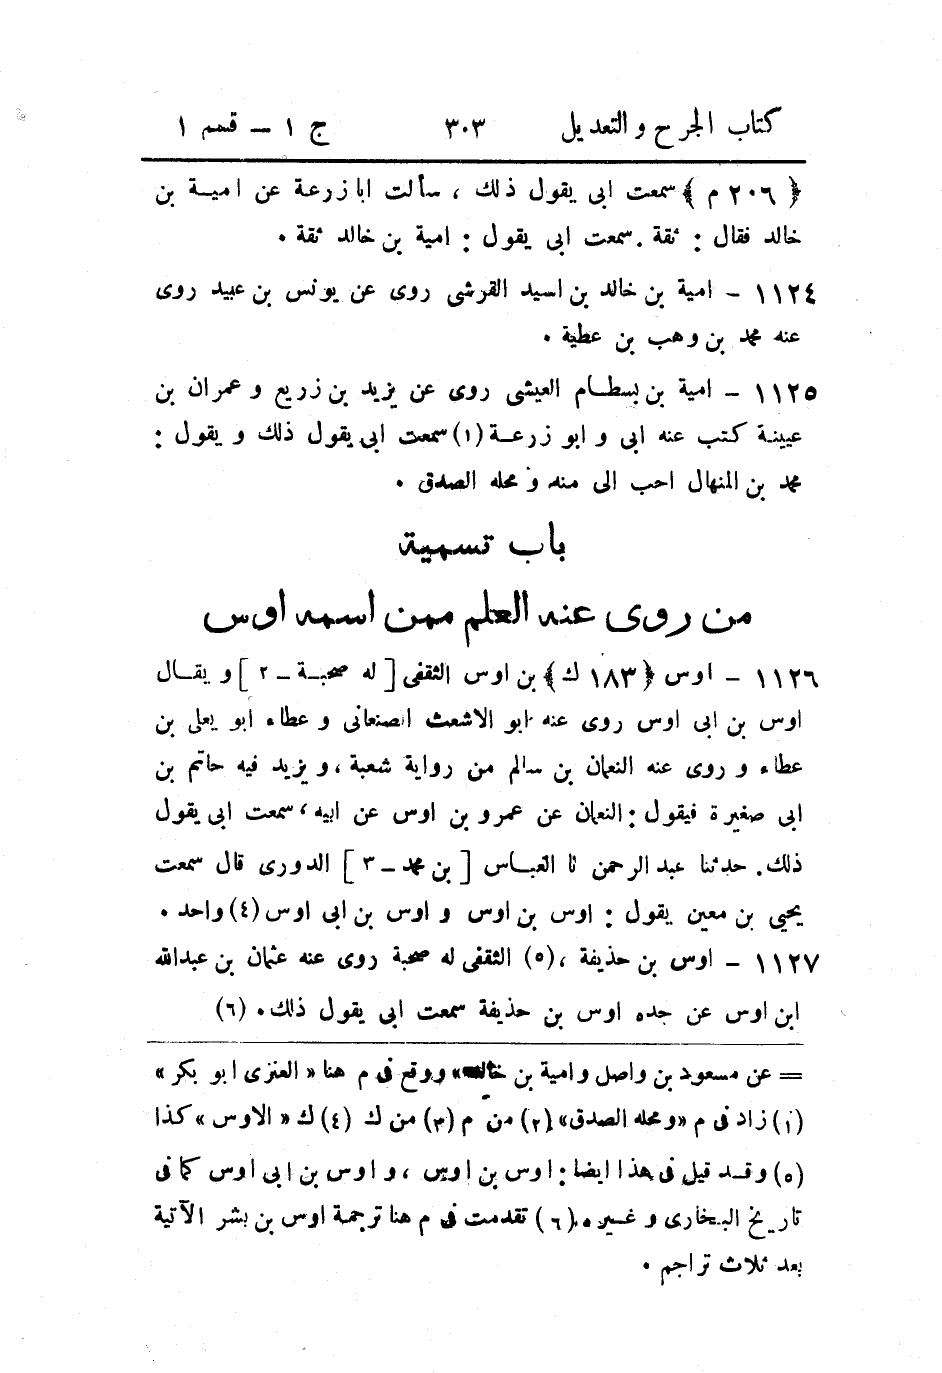 كتاب الجرح والتعديل ٣٠٣ ج ١ – قسم ١
﴿٢٠٦ م﴾ سمعت ابى يقول ذلك ، سألت ابا زرعة عن امية بن
خالد فقال : ثقة . سمعت ابى يقول : امية بن خالد ثقة .
١١٢٤ – امية بن خالد بن اسيد القرشى روى عن يونس بن عبيد روى
عنه محمد بن وهب بن عطية .
١١٢٥ – امية بن بسطام العيشى روى عن يزيد بن زريع و عمران بن
عيينة كتب عنه ابى و ابو زرعة (١) سمعت ابى يقول ذلك و يقول :
محمد بن المنهال احب الى منه و محله الصدق .
باب تسمية
من روى عنه العلم ممن اسمه اوس
١١٢٦ – اوس ﴿١٨٣ ك﴾ بن اوس الثقفى [ له صحبة – ٢ ] و يقال
اوس بن ابى اوس روى عنه ابو الاشعث الصنعانى و عطاء ابو يعلى بن
عطاء و روى عنه النعمان بن سالم من رواية شعبة ، و يزيد فيه حاتم بن
ابى صغيرة فيقول : النعمان عن عمرو بن اوس عن ابيه ، سمعت ابى يقول
ذلك . حدثنا عبد الرحمن نا العباس [ بن محمد – ٣ ] الدورى قال سمعت
يحيى بن معين يقول : اوس بن اوس و اوس بن ابى اوس (٤) واحد .
١١٢٧ – اوس بن حذيفة ، (٥) الثقفى له صحبة روى عنه عثمان بن عبدالله
ابن اوس عن جده اوس بن حذيفة سمعت ابى يقول ذلك . (٦)
= عن مسعود بن واصل وامية بن خالد» ووقع فى م هنا « العنزى ابو بكر »
(١) زاد فى م «ومحله الصدق» (٢) من م (٣) من ك (٤) ك « الاوس » كذا
(٥) وقد قيل فى هذا ايضا : اوس بن اوس ، و اوس بن ابى اوس كما فى
تاريخ البخارى و غيره . (٦) تقدمت فى م هنا ترجمة اوس بن بشر الآتية
بعد ثلاث تراجم .